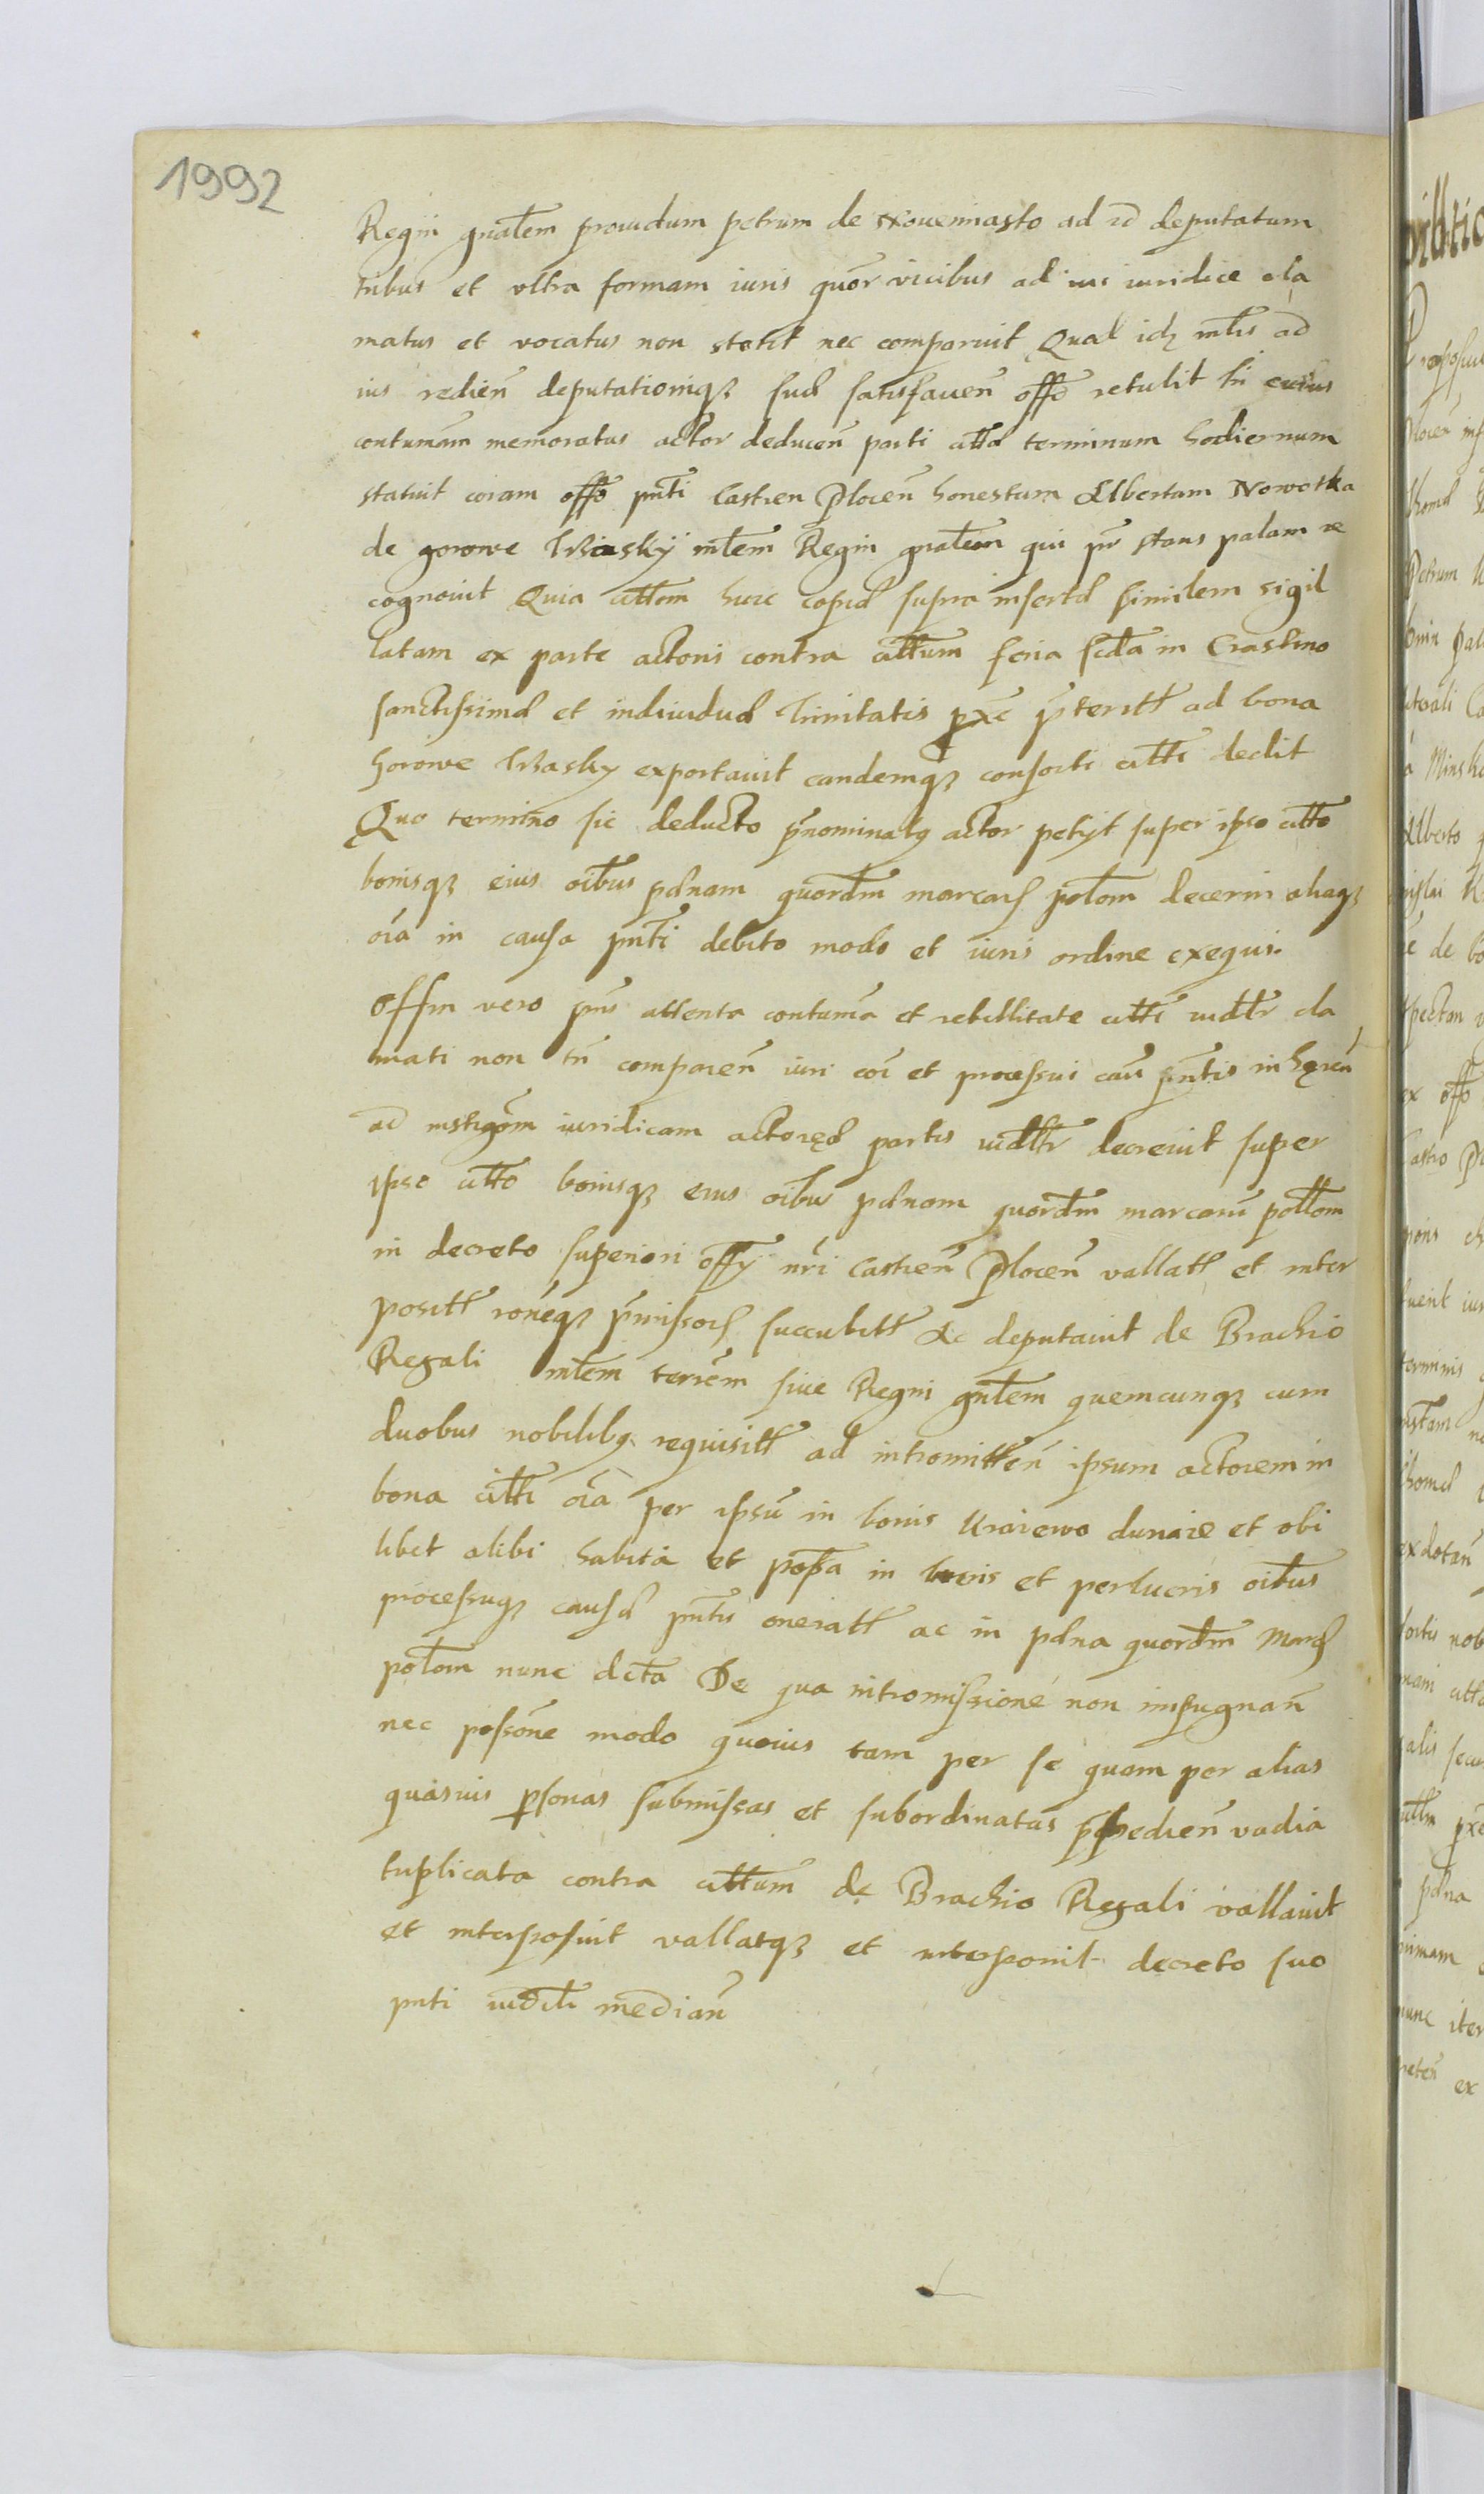 1992
Regni gnałem prouidum petrum de Nouemiasto ad id deputatum
tribus et vltra formam iuris quor vicibus ad ius iuridice cla
matus et vocatus non stetit nec comparuit Qual idz mlis ad
ius redień deputationiqz suæ satisfacień offo retulit In cuius
contumam memoratus actor deducen parti cittæ terminum hodiernum
statuit coram offo pnti Castren Plocen honestum Albertum Nowotka
de gorowe Własky mlem Regni gnalem qui pns stans palam re
cognouit Quia cittem huic copiæ supra insertæ similem sigil
latam ex parte actoris contra cittum feria scda in Crastino
sanctissimæ et indiuiduæ trinitatis pxe pteritt ad bona
gorowe Własky exportauit eandemqz consorti citti dedit
Quo termino sic deducto pnominatq actor petijt super ipso citto
bonisqz eius oibus pænam quordm marcarz polom decerni aliaqz
oia in causa pnti debito modo et iuris ordine exequi.
Offm vero pns attenta contuma et rebellitate citti iudltr cla
mati non tn comparen iuri coi et processui cau pntis inhæren
ad instigom iuridicam actoreæ partis iudltr decreuit super
ipso citto bonisqz eius oibus pænam quordm marcaru pollom
in decreto superiori offy nri Castren Plocen vallatt et inter
positt roneqz pmissorz succubitt Ac deputauit de Brachio
Regali mlem terrem siue Regni gnlem quemcunqz cum
duobus nobilibq requisitt ad intromitten ipsum actorem in
bona citti oia per ipsu in bonis Kraiewo dunaie et vbi
libet alibi habita et possa in lucris et perlucris oibus
processuqz causæ pntis oneratt ac in pæna quordm Marcz
polom nunc dcta De qua intromissione non impugnan
nec possone modo quouis tam per se quam per alias
quasuis psonas submissas et subordinatas ppedien vadia
triplicata contra cittum de Brachio Regali vallauit
et interposuit vallatqz et interponit decreto suo
pnti iudcli median